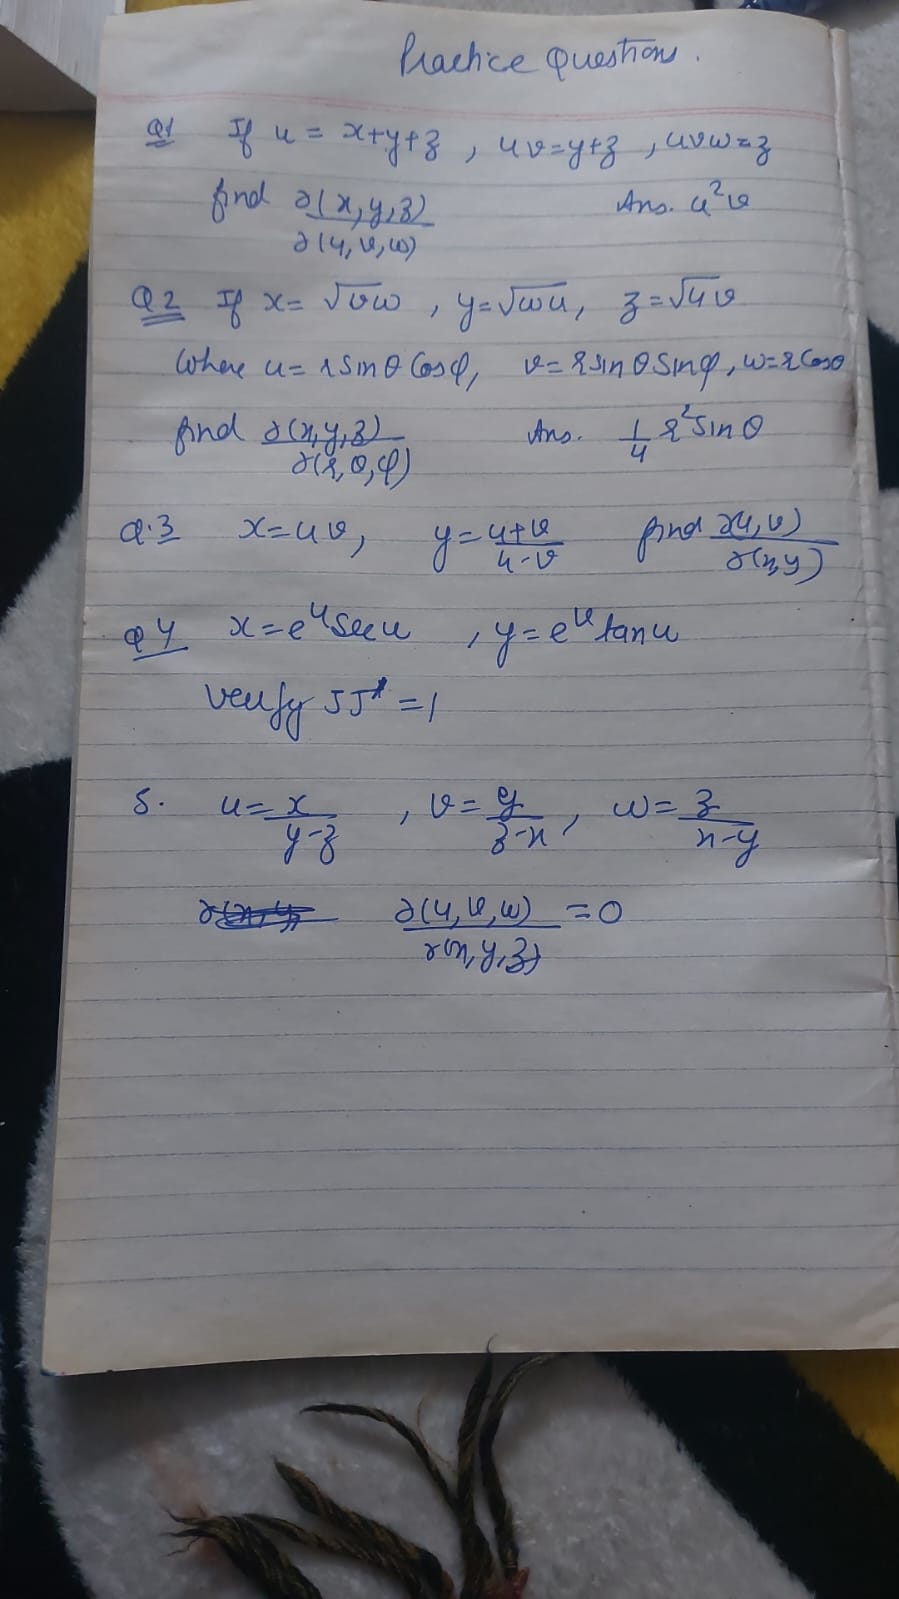 Practice Questions.
Q1 If u = x+y+z , uv=y+z , uvw=z
find ∂(x,y,z)/∂(u,v,w) Ans. u²v
Q2 If x= √vw , y=√wu, z=√uv
Where u= r sinθ Cosφ, v= r sinθ Sinφ, w=r Cosθ
find ∂(x,y,z)/∂(r,θ,φ) Ans. 1/4 r² Sinθ
Q.3 x=uv, y= u+v/u-v find ∂(u,v)/∂(x,y)
Q4 x=eᵘ Sec u , y= eᵘ tan u
Verify JJ* =1
5. u= x/y-z , v= y/z-x , w= z/x-y
∂(u,v,w)/∂(x,y,z) =0